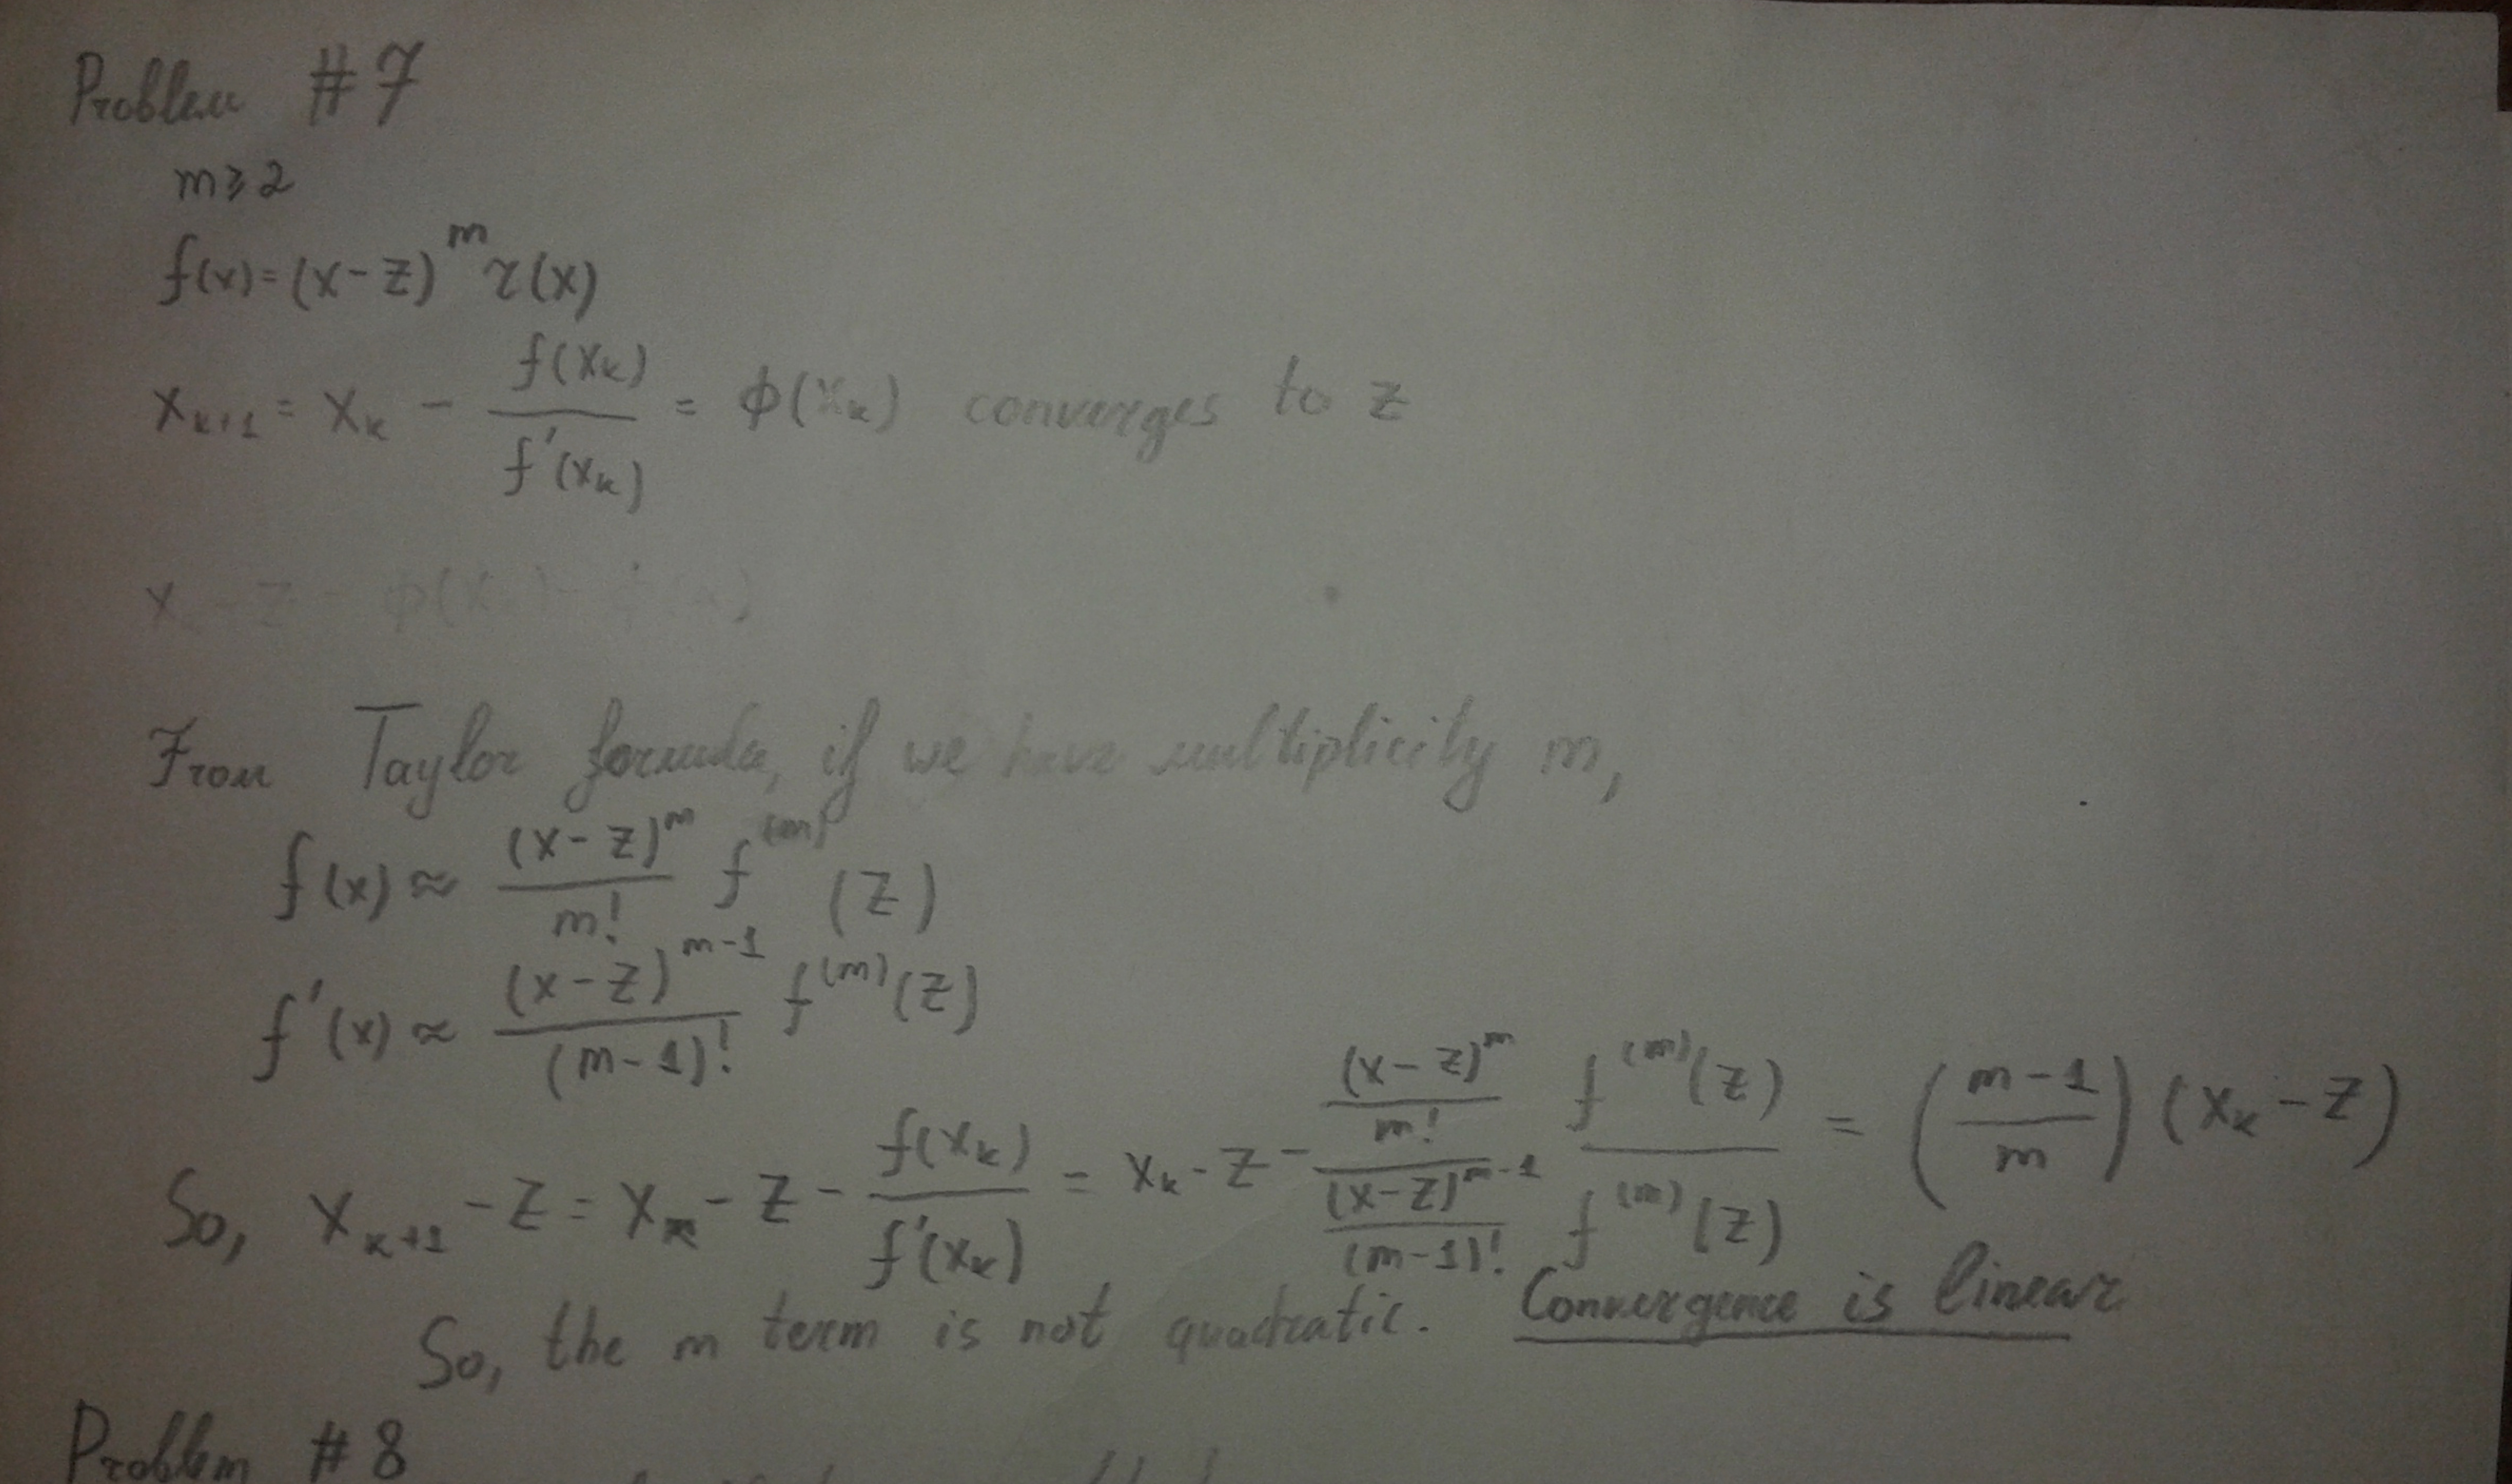 Problem #7
m ≥ 2
f(x) = (x-z)^m r(x)
x_{k+1} = x_k - f(x_k) / f'(x_k) = ϕ(x_k) converges to z
From Taylor formula, if we have multiplicity m,
f(x) ≈ (x-z)^m / m! f^{(m)}(z)
f'(x) ≈ (x-z)^{m-1} / (m-1)! f^{(m)}(z)
So, x_{k+1} - z = x_k - z - f(x_k) / f'(x_k) = x_k - z - ((x-z)^m / m!) / ((x-z)^{m-1} / (m-1)!) f^{(m)}(z) / f^{(m)}(z) = ((m-1) / m) (x_k - z)
So, the m term is not quadratic. Convergence is linear
Problem #8